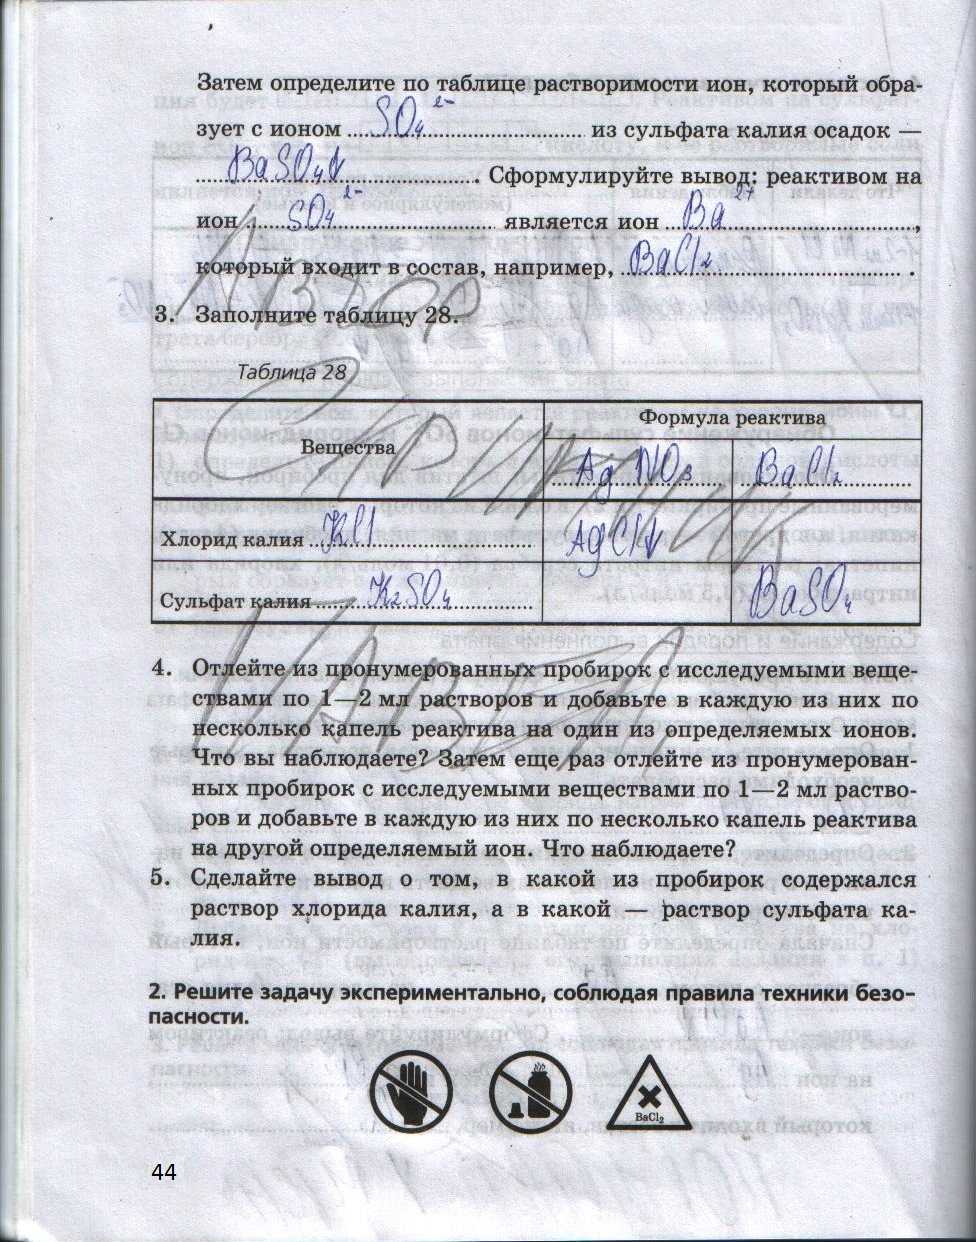 Затем определите по таблице растворимости ион, который обра-
зует с ионом SO₄²⁻ из сульфата калия осадок —
BaSO₄↓. Сформулируйте вывод: реактивом на
ион SO₄²⁻ является ион Ba²⁺,
который входит в состав, например, BaCl₂.
3. Заполните таблицу 28.
Таблица 28
Вещества
Формула реактива
AgNO₃ BaCl₂
Хлорид калия KCl AgCl↓
Сульфат калия K₂SO₄ BaSO₄
4. Отлейте из пронумерованных пробирок с исследуемыми веще-
ствами по 1—2 мл растворов и добавьте в каждую из них по
несколько капель реактива на один из определяемых ионов.
Что вы наблюдаете? Затем еще раз отлейте из пронумерован-
ных пробирок с исследуемыми веществами по 1—2 мл раство-
ров и добавьте в каждую из них по несколько капель реактива
на другой определяемый ион. Что наблюдаете?
5. Сделайте вывод о том, в какой из пробирок содержался
раствор хлорида калия, а в какой — раствор сульфата ка-
лия.
2. Решите задачу экспериментально, соблюдая правила техники безо-
пасности.
BaCl₂
44